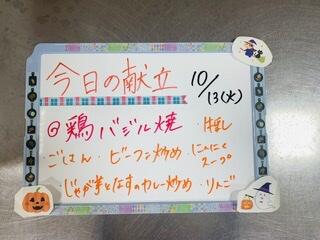 今日の献立
10/13(火)
@鶏バジル焼
・ごはん ・ビーフン炒め ・にんにくスープ
・じゃが芋となすのカレー炒め ・りんご